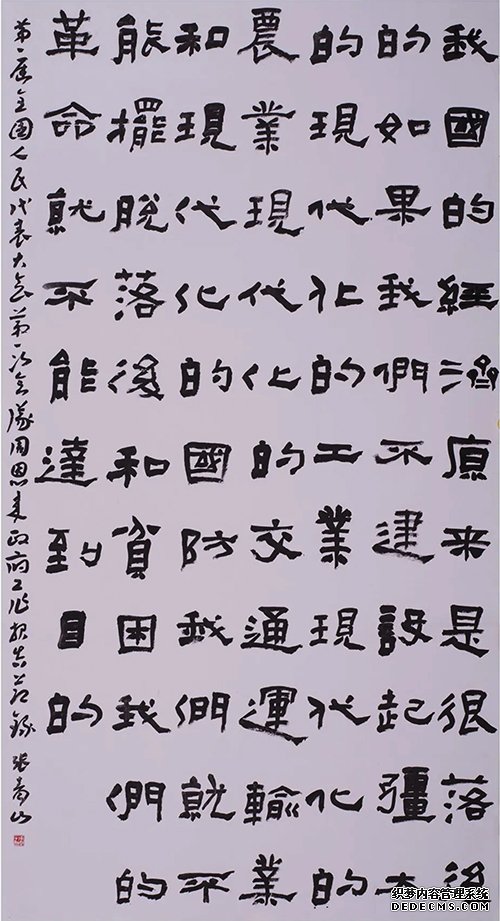 我國的經濟原来是很落後
的如果我們不建設起彊大
的現代化的工業現代化的
農業現代化的交通運輸業
和現代化的國防我們就不
能擺脫落後和貧困我們的
革命就不能達到目的
第一届全国人民代表大会第一次会議周恩来政府工作报告节錄
织梦内容管理系统
DEDECMS.COM